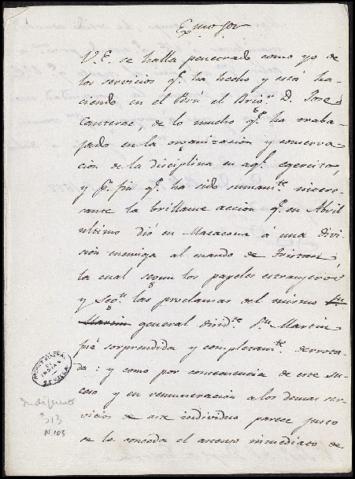 Exmo Sor
V.E. se halla penetrado como yo de
los servicios q.e ha hecho y está ha-
ciendo en el Perú el Brig.r D. José
Canterac, de lo mucho q.e ha traba-
jado en la organizacion y conserva-
cion de la disciplina en aq.l exercito
y p.r fin q.e ha sido sumam.te intere-
sante la brillante accion q.e en Abril
ultimo dió en Macacona á una divi-
sión enemiga al mando de Tristan
la cual segun los papeles extrangeros
y seg.n las proclamas del mismo
Martin general disid.te S.n Martin
fué sorprendida y completam.te derrota-
da: y como por consecuencia de este su-
ceso y en remuneración a los demas ser-
vicios de este individuo parece justo
se le conceda el ascenso inmediato de
Indiferente
313
N 103